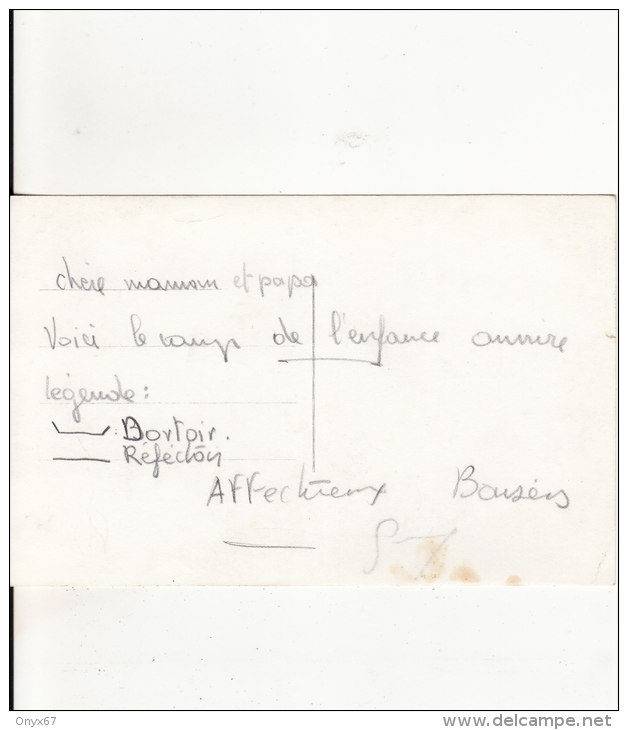 chère maman et papa
Voici le camp de l'enfance ouvrire
légende:
: Dortoir.
Réfectoir
Affectueux Baisers
Onyx67
www.delcampe.net